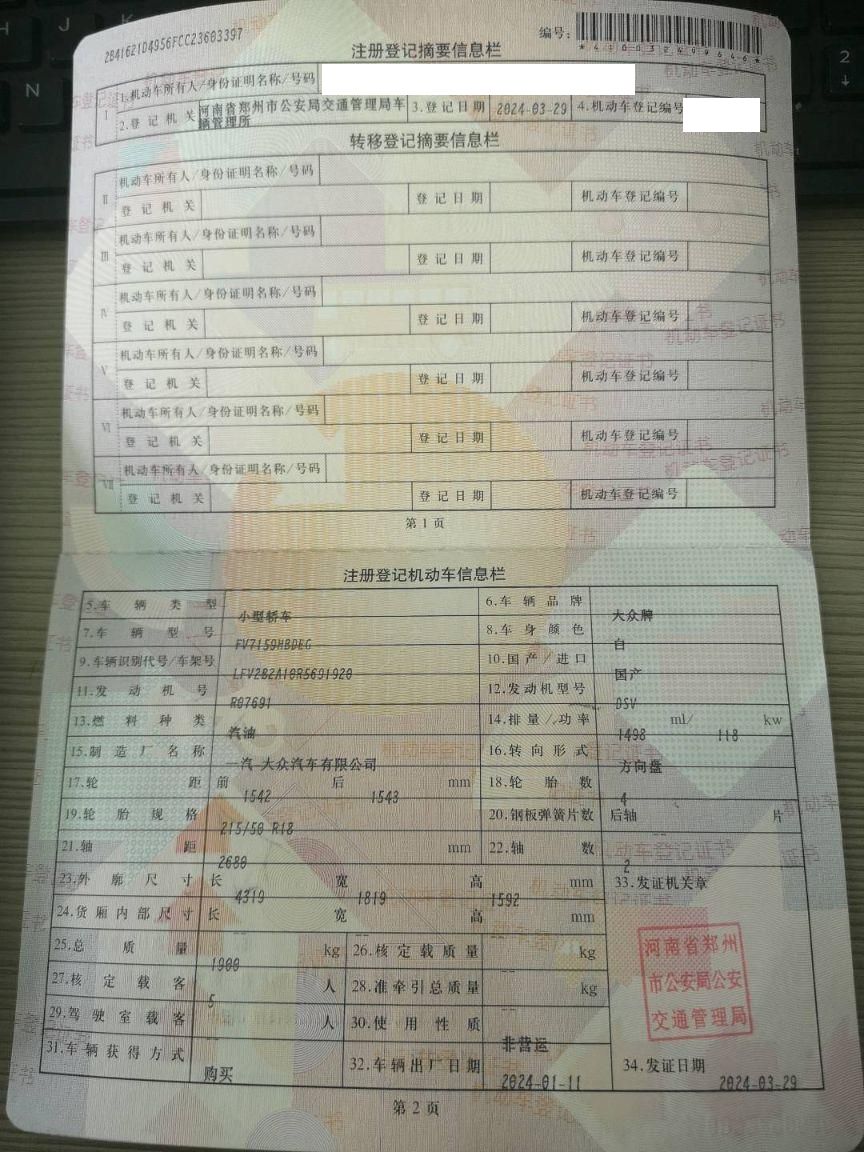 2B41621D4956FCC23603397
编号:
*410032499646*
注册登记摘要信息栏
I 1.机动车所有人/身份证明名称/号码
2.登记机关 河南省郑州市公安局交通管理局车辆管理所 3.登记日期 2024-03-29 4.机动车登记编号
转移登记摘要信息栏
II 机动车所有人/身份证明名称/号码
登记机关 登记日期 机动车登记编号
III 机动车所有人/身份证明名称/号码
登记机关 登记日期 机动车登记编号
IV 机动车所有人/身份证明名称/号码
登记机关 登记日期 机动车登记编号
V 机动车所有人/身份证明名称/号码
登记机关 登记日期 机动车登记编号
VI 机动车所有人/身份证明名称/号码
登记机关 登记日期 机动车登记编号
VII 机动车所有人/身份证明名称/号码
登记机关 登记日期 机动车登记编号
第1页
注册登记机动车信息栏
5.车辆类型 小型轿车 6.车辆品牌 大众牌
7.车辆型号 FV7159HBDEG 8.车身颜色 白
9.车辆识别代号/车架号 LFV2B2A10R5691920 10.国产/进口 国产
11.发动机号 R07691 12.发动机型号 DSV
13.燃料种类 汽油 14.排量/功率 1498 ml/ 118 kw
15.制造厂名称 一汽-大众汽车有限公司 16.转向形式 方向盘
17.轮距 前 1542 后 1543 mm 18.轮胎数 4
19.轮胎规格 215/50 R18 20.钢板弹簧片数 后轴 -- 片
21.轴距 2680 mm 22.轴数 2
23.外廓尺寸 长 4319 宽 1819 高 1592 mm 33.发证机关章
24.货厢内部尺寸 长 宽 高 -- mm
25.总质量 1900 kg 26.核定载质量 -- kg
27.核定载客 5 人 28.准牵引总质量 -- kg
29.驾驶室载客 -- 人 30.使用性质 非营运
31.车辆获得方式 购买 32.车辆出厂日期 2024-01-11 34.发证日期 2024-03-29
河南省郑州
市公安局公安
交通管理局
第2页